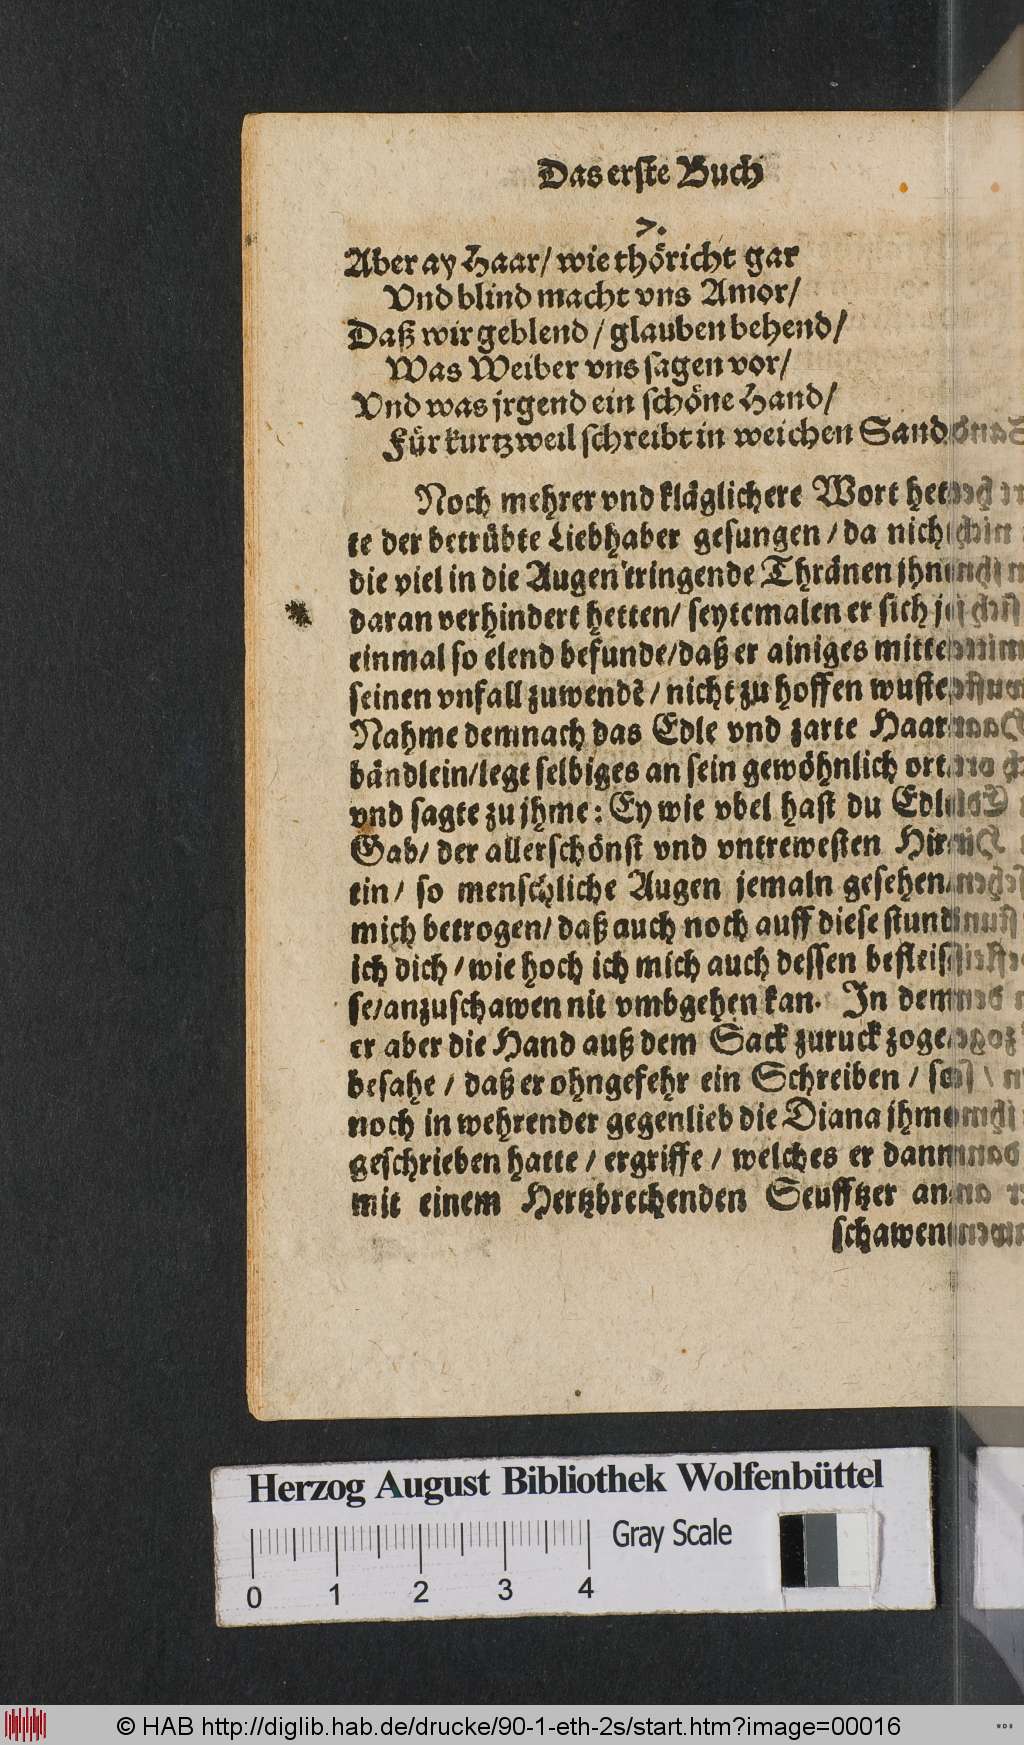 Das erste Buch
7.
Aber ay Haar/ wie thöricht gar
Vnd blind macht vns Amor/
Daß wir geblend / glauben behend/
Was Weiber vns sagen vor/
Vnd was jrgend ein schöne Hand/
Für kurtzweil schreibt in weichen Sand
Noch mehrer vnd kläglichere Wort het
te der betrübte Liebhaber gesungen / da nich
die viel in die Augen tringende Thränen jhn
daran verhindert hetten/ seytemalen er sich j
einmal so elend befunde/daß er ainiges mitte
seinen vnfall zuwendē / nicht zu hoffen wuste
Nahme demnach das Edle vnd zarte Haar
bändlein/legt selbiges an sein gewöhnlich ort
vnd sagte zu jhme: Ey wie vbel hast du Edl
Gab/ der allerschönst vnd vntrewesten Hir
tin/ so menschliche Augen jemaln gesehen
mich betrogen/ daß auch noch auff diese stund
ich dich / wie hoch ich mich auch dessen befleis
se/anzuschawen nit vmbgehen kan. In dem
er aber die Hand auß dem Sack zuruck zoge
besahe / daß er ohngefehr ein Schreiben / so
noch in wehrender gegenlieb die Diana jhm
geschrieben hatte / ergriffe / welches er dann
mit einem Hertzbrechenden Seufftzer an
schawen
Herzog August Bibliothek Wolfenbüttel
Gray Scale
0 1 2 3 4
© HAB http://diglib.hab.de/drucke/90-1-eth-2s/start.htm?image=00016